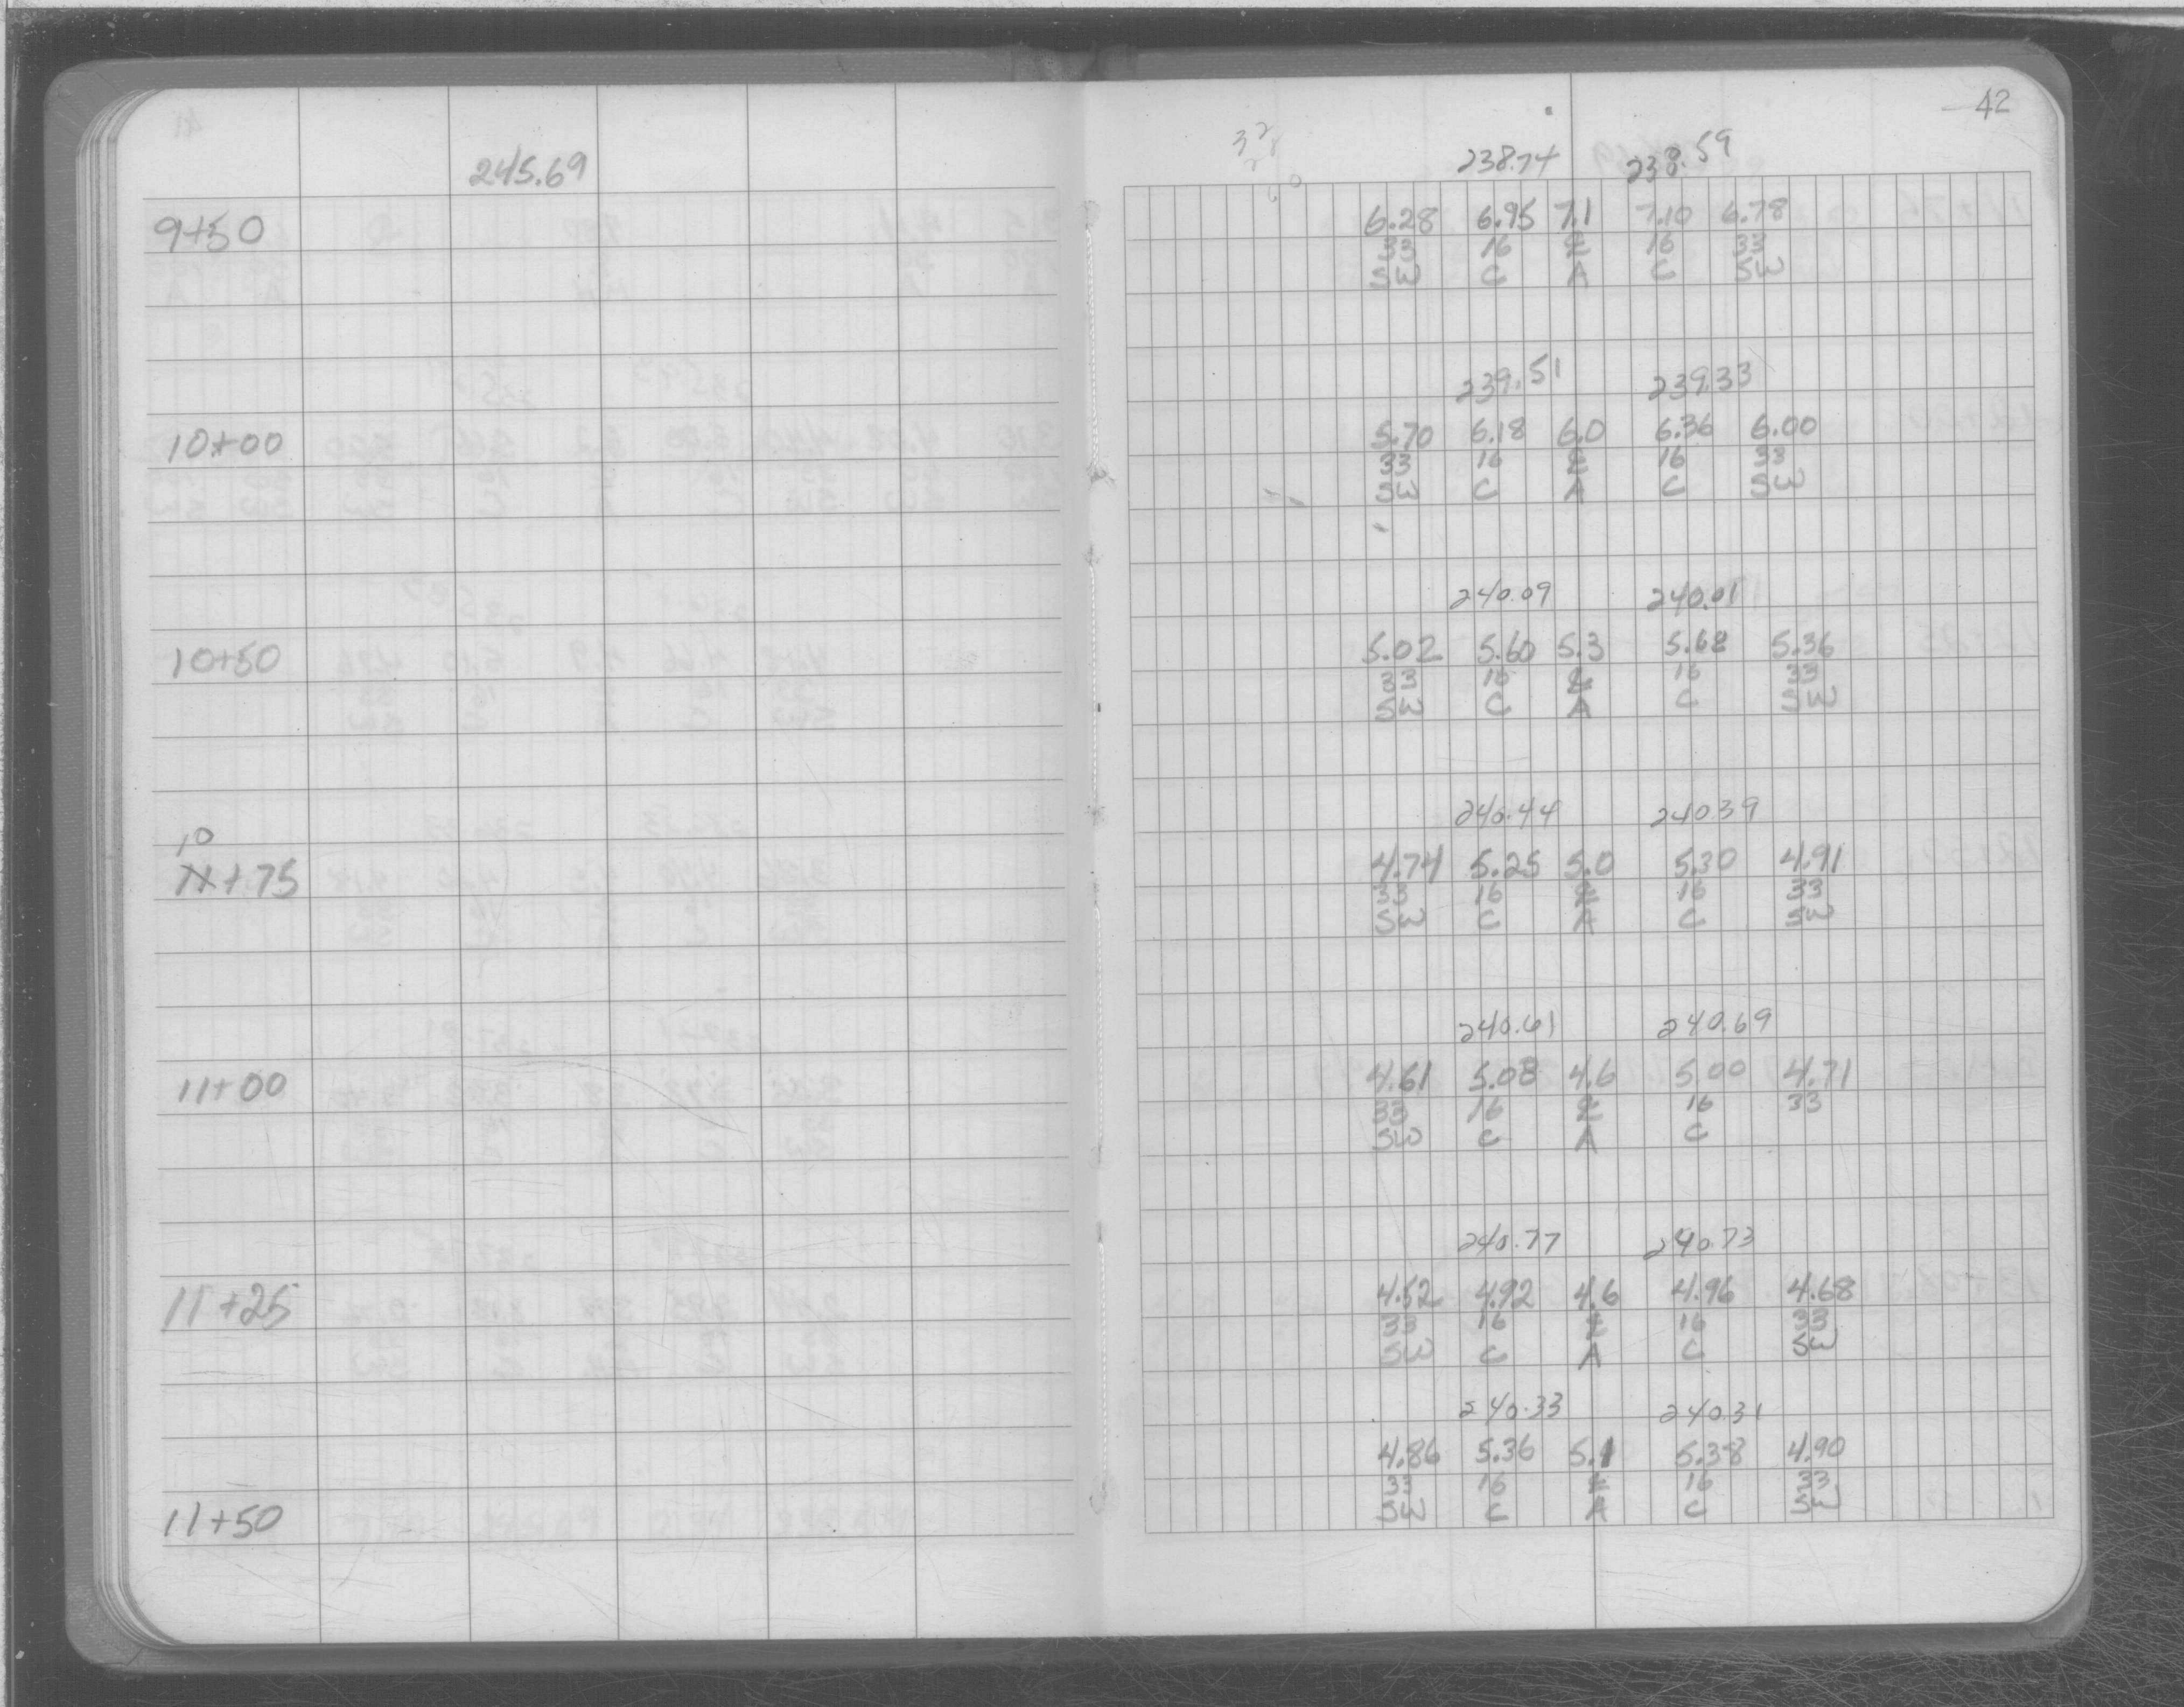 42
245.69
238.74 238.59
9+50 6.28 6.95 7.1 7.10 6.78
33 16 ℄ 16 33
SW C A C SW
239.51 239.33
10+00 5.70 6.18 6.0 6.36 6.00
33 16 ℄ 16 33
SW C A C SW
240.09 240.01
10+50 5.02 5.60 5.3 5.68 5.36
33 16 ℄ 16 33
SW C A C SW
240.44 240.39
10
11+75 4.74 5.25 5.0 5.30 4.91
33 16 ℄ 16 33
SW C A C SW
240.61 240.69
11+00 4.61 5.08 4.6 5.00 4.71
33 16 ℄ 16 33
SW C A C
240.77 240.73
11+25 4.52 4.92 4.6 4.96 4.68
33 16 ℄ 16 33
SW C A C SW
240.33 240.31
4.86 5.36 5.1 5.38 4.90
33 16 ℄ 16 33
11+50 SW C A C SW